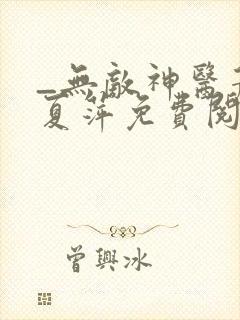 _無敵神醫
夏萍免費閱
曾興冰